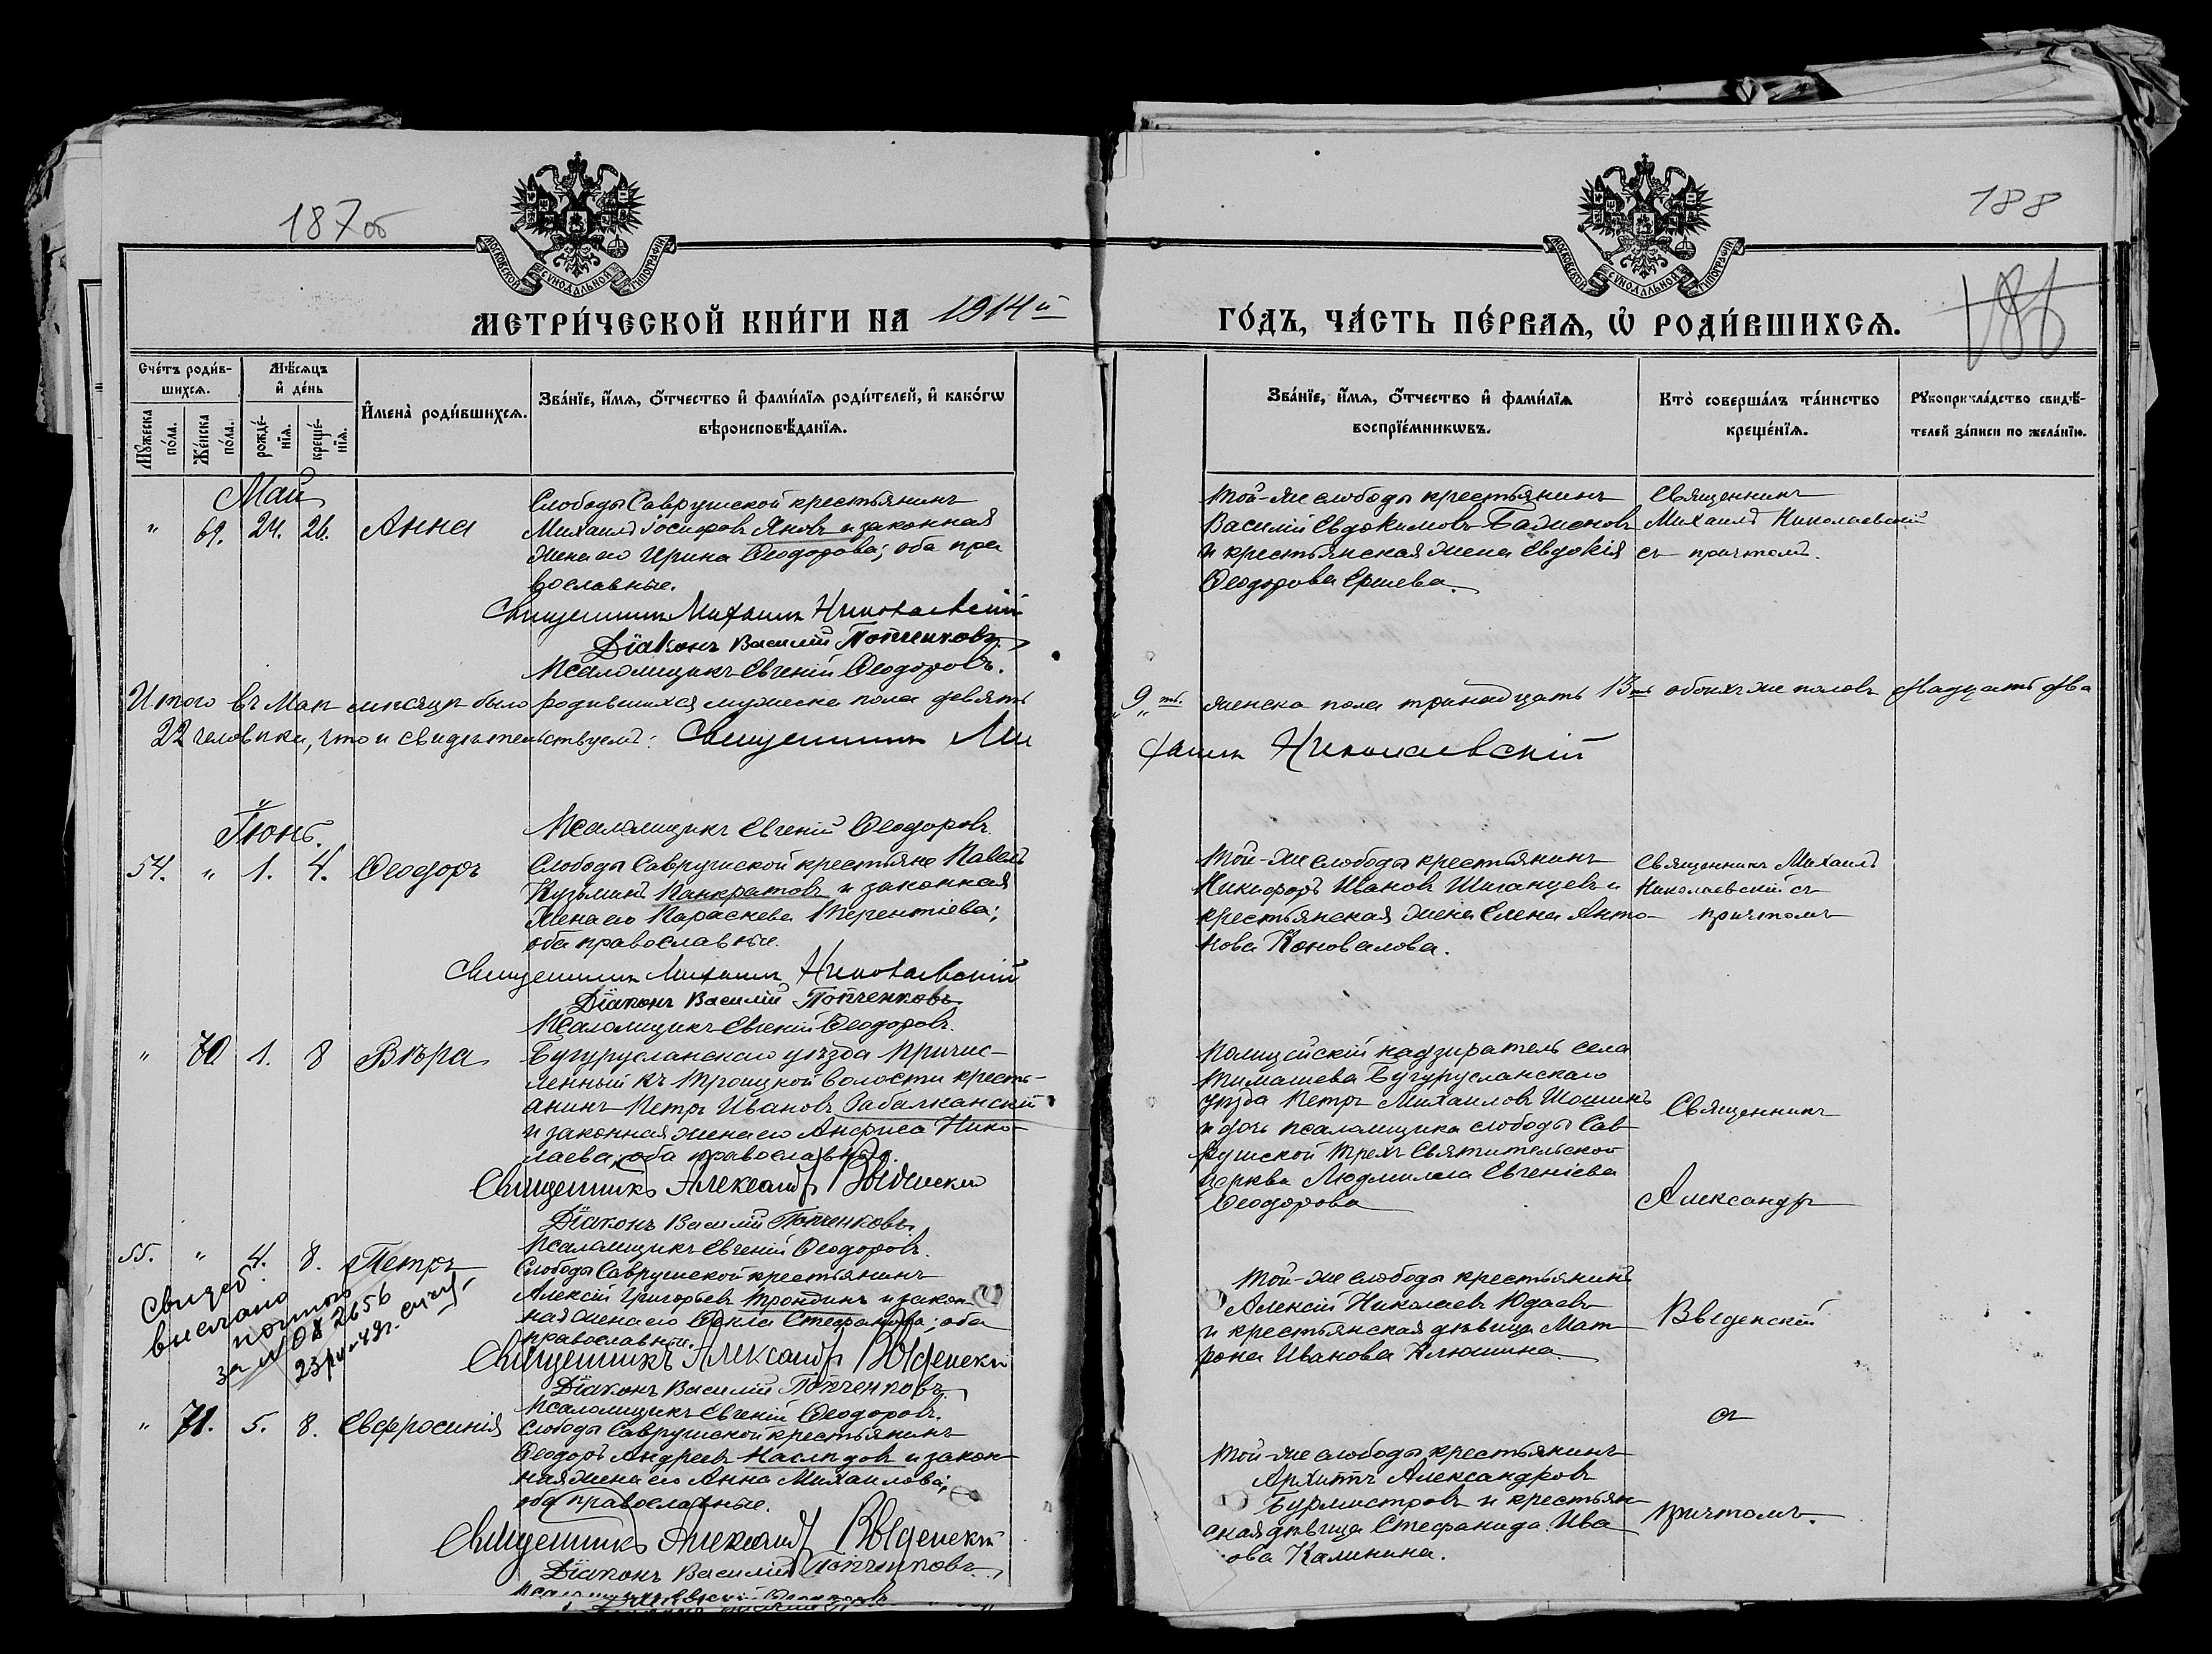 187 об
188
186
МОСКОВСКОЙ СѴНОДАЛЬНОЙ ТИПОГРАФІИ
МОСКОВСКОЙ СѴНОДАЛЬНОЙ ТИПОГРАФІИ
МЕТРИ́ЧЕСКОЙ КНИ́ГИ НА 1914й
ГО́ДЪ, ЧА́СТЬ ПЕ́РВАѦ, Ѡ РОДИ́ВШИХСѦ.
Счетъ роди́в-
шихсѧ.
Мѣсѧцъ
и де́нь
Мꙋжеска по́ла.
Же́нска по́ла.
рожде́-
нїѧ.
креще́-
нїѧ.
Имена̀ роди́вшихсѧ.
Зва́нїе, и́мѧ, о́тчество и фами́лїѧ роди́телей, и како́гѡ
вѣроисповѣ́данїѧ.
Зва́нїе, и́мѧ, о́тчество и фами́лїѧ
воспрїе́мникѡвъ.
Кто̀ соверша́лъ та́инство
креще́нїѧ.
Рꙋкоприкла́дство свидѣ́-
телей за́писи по жела́нїю.
Май
" 69. 24. 26. Анна
Слободы Саврушской крестьянинъ
Михаилъ Іосифовъ Яновъ и законная
жена его Ирина Ѳеодорова; оба пра
вославные.
Священникъ Михаилъ Николаевскій
Діаконъ Василій Попченковъ
Псаломщикъ Евгеній Ѳеодоровъ.
Той-же слободы крестьянинъ
Василій Евдокимовъ
и крестьянская жена Евдокія
Ѳеодорова Ершева.
Священникъ
Михаилъ Николаевскій
съ причтомъ.
Итого въ Маѣ мѣсяцѣ было родившихся мужеска пола девять
"9"ть. женска пола тринадцать 13ть обоихъ же половъ двадцать два
22 человѣка, что и свидѣтельствуемъ: Священникъ Ми
хаилъ Николаевскій
Псаломщикъ Евгеній Ѳеодоровъ.
Іюнь.
54. " 1. 4. Ѳеодоръ
Слободы Саврушской крестьяне Павелъ
Кузьминъ Панкратовъ и законная
жена его Параскева Терентіева;
оба православные.
Священникъ Михаилъ Николаевскій
Діаконъ Василій Попченковъ.
Псаломщикъ Евгеній Ѳеодоровъ.
Той-же слободы крестьянинъ
Никифоръ Ивановъ Шиганцевъ и
крестьянская жена Елена Анто-
нова Коновалова.
Священникъ Михаилъ
Николаевскій съ
причтомъ
" 70. 1. 8 Вѣра
Бугурусланскаго уѣзда причис-
ленный къ Троицкой волости кресть-
янинъ Петръ Ивановъ Забалканскій
и законная жена его Анфиса Нико-
лаева; оба православные.
Священникъ Александръ Введенскій
Діаконъ Василій Попченковъ.
Псаломщикъ Евгеній Ѳеодоровъ.
Полицейскій надзиратель села
Тимашева Бугурусланскаго
уѣзда Петръ Михаиловъ Шошинъ
и дочь псаломщика слободы Сав-
рушской Трехъ Святительской
церкви Людмила Евгеніева
Ѳеодорова
Священникъ
Александръ
55. " 4. 8. Петръ
Слободы Саврушской крестьянинъ
Алексій Григорьевъ Трондинъ и закон-
ная жена его Ѳекла Стефанова; оба
православные.
Священникъ Александръ Введенскій
Діаконъ Василій Попченковъ.
Псаломщикъ Евгеній Ѳеодоровъ.
Свидет
выслано
почтою
за № 08 2656
Той-же слободы крестьянинъ
Алексій Николаевъ Юдаевъ
и крестьянская дѣвица Мат
рона Иванова Алюшина.
Введенскій
" 71. 5. 8. Евфросинія
Слободы Саврушской крестьянинъ
Ѳеодоръ Андреевъ Наслѣдовъ и закон-
ная жена его Анна Михаилова;
оба православные.
Священникъ Александръ Введенскій
Діаконъ Василій Попченковъ.
Псаломщикъ Евгеній Ѳеодоровъ
съ
Той-же слободы крестьянинъ
Архиппъ Александровъ
Бурмистровъ и крестьян-
ская дѣвица Стефанида Ива
нова Калинина.
причтомъ.